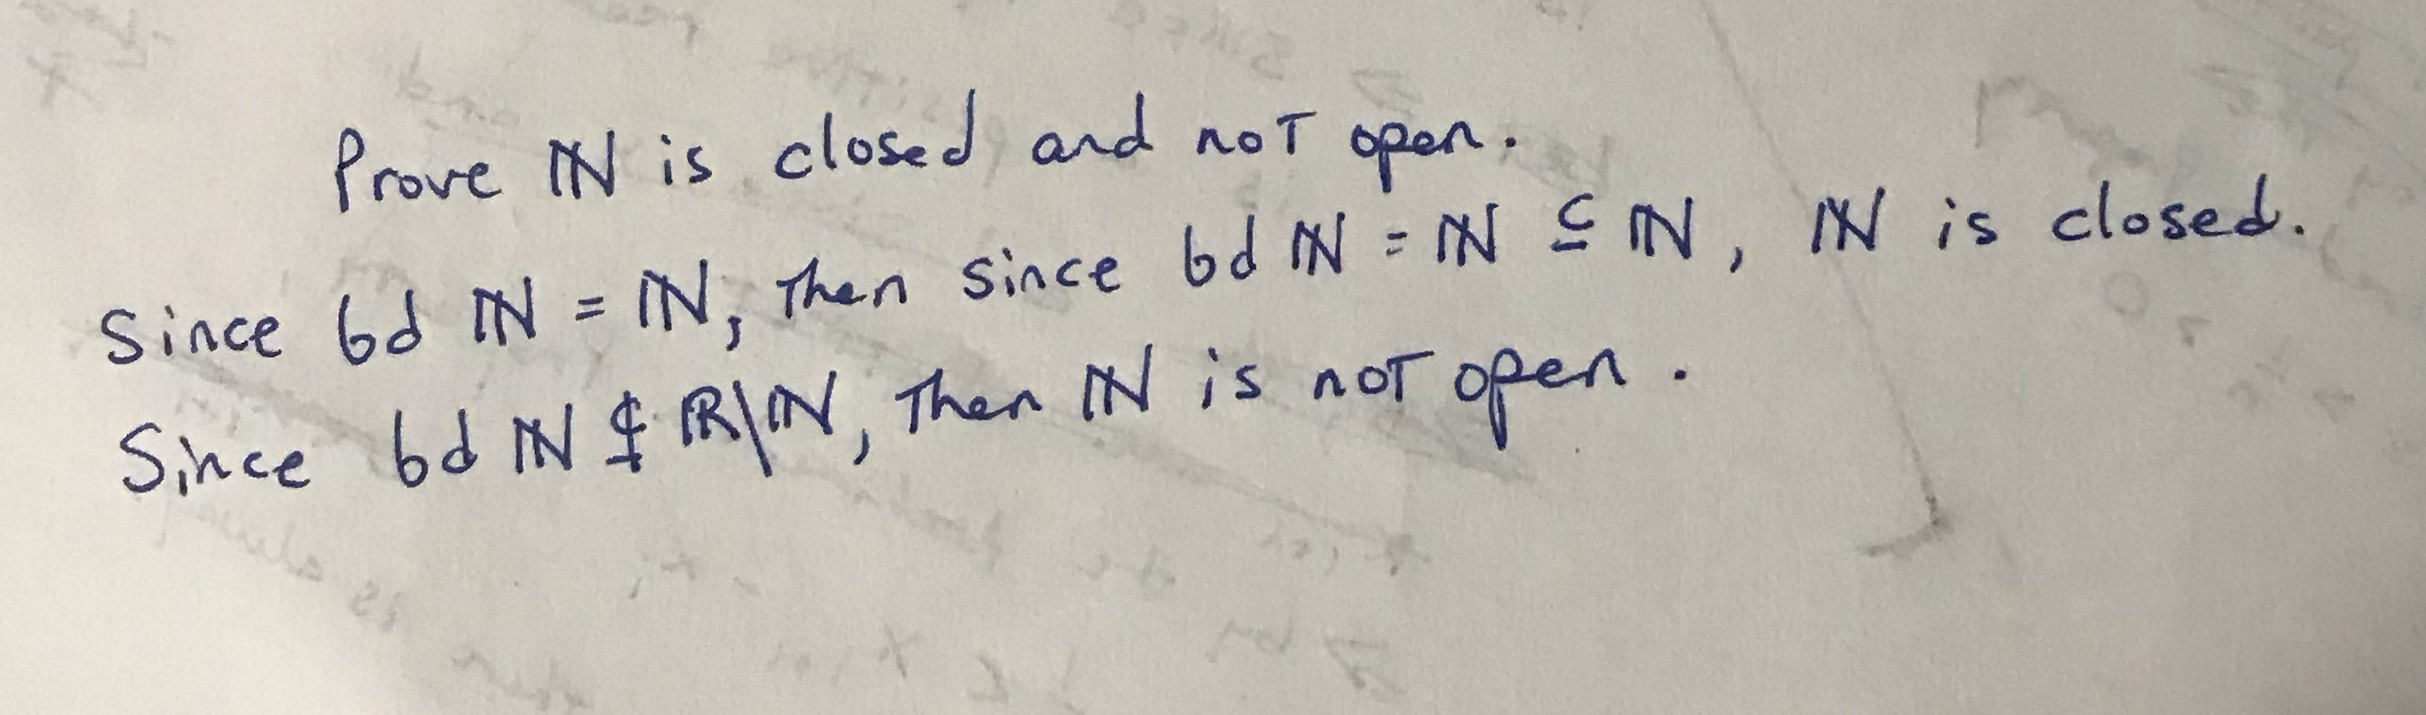 Prove ℕ is closed and not open.
Since bd ℕ = ℕ, then since bd ℕ = ℕ ⊆ ℕ, ℕ is closed.
Since bd ℕ ⊈ ℝ\ℕ, then ℕ is not open.